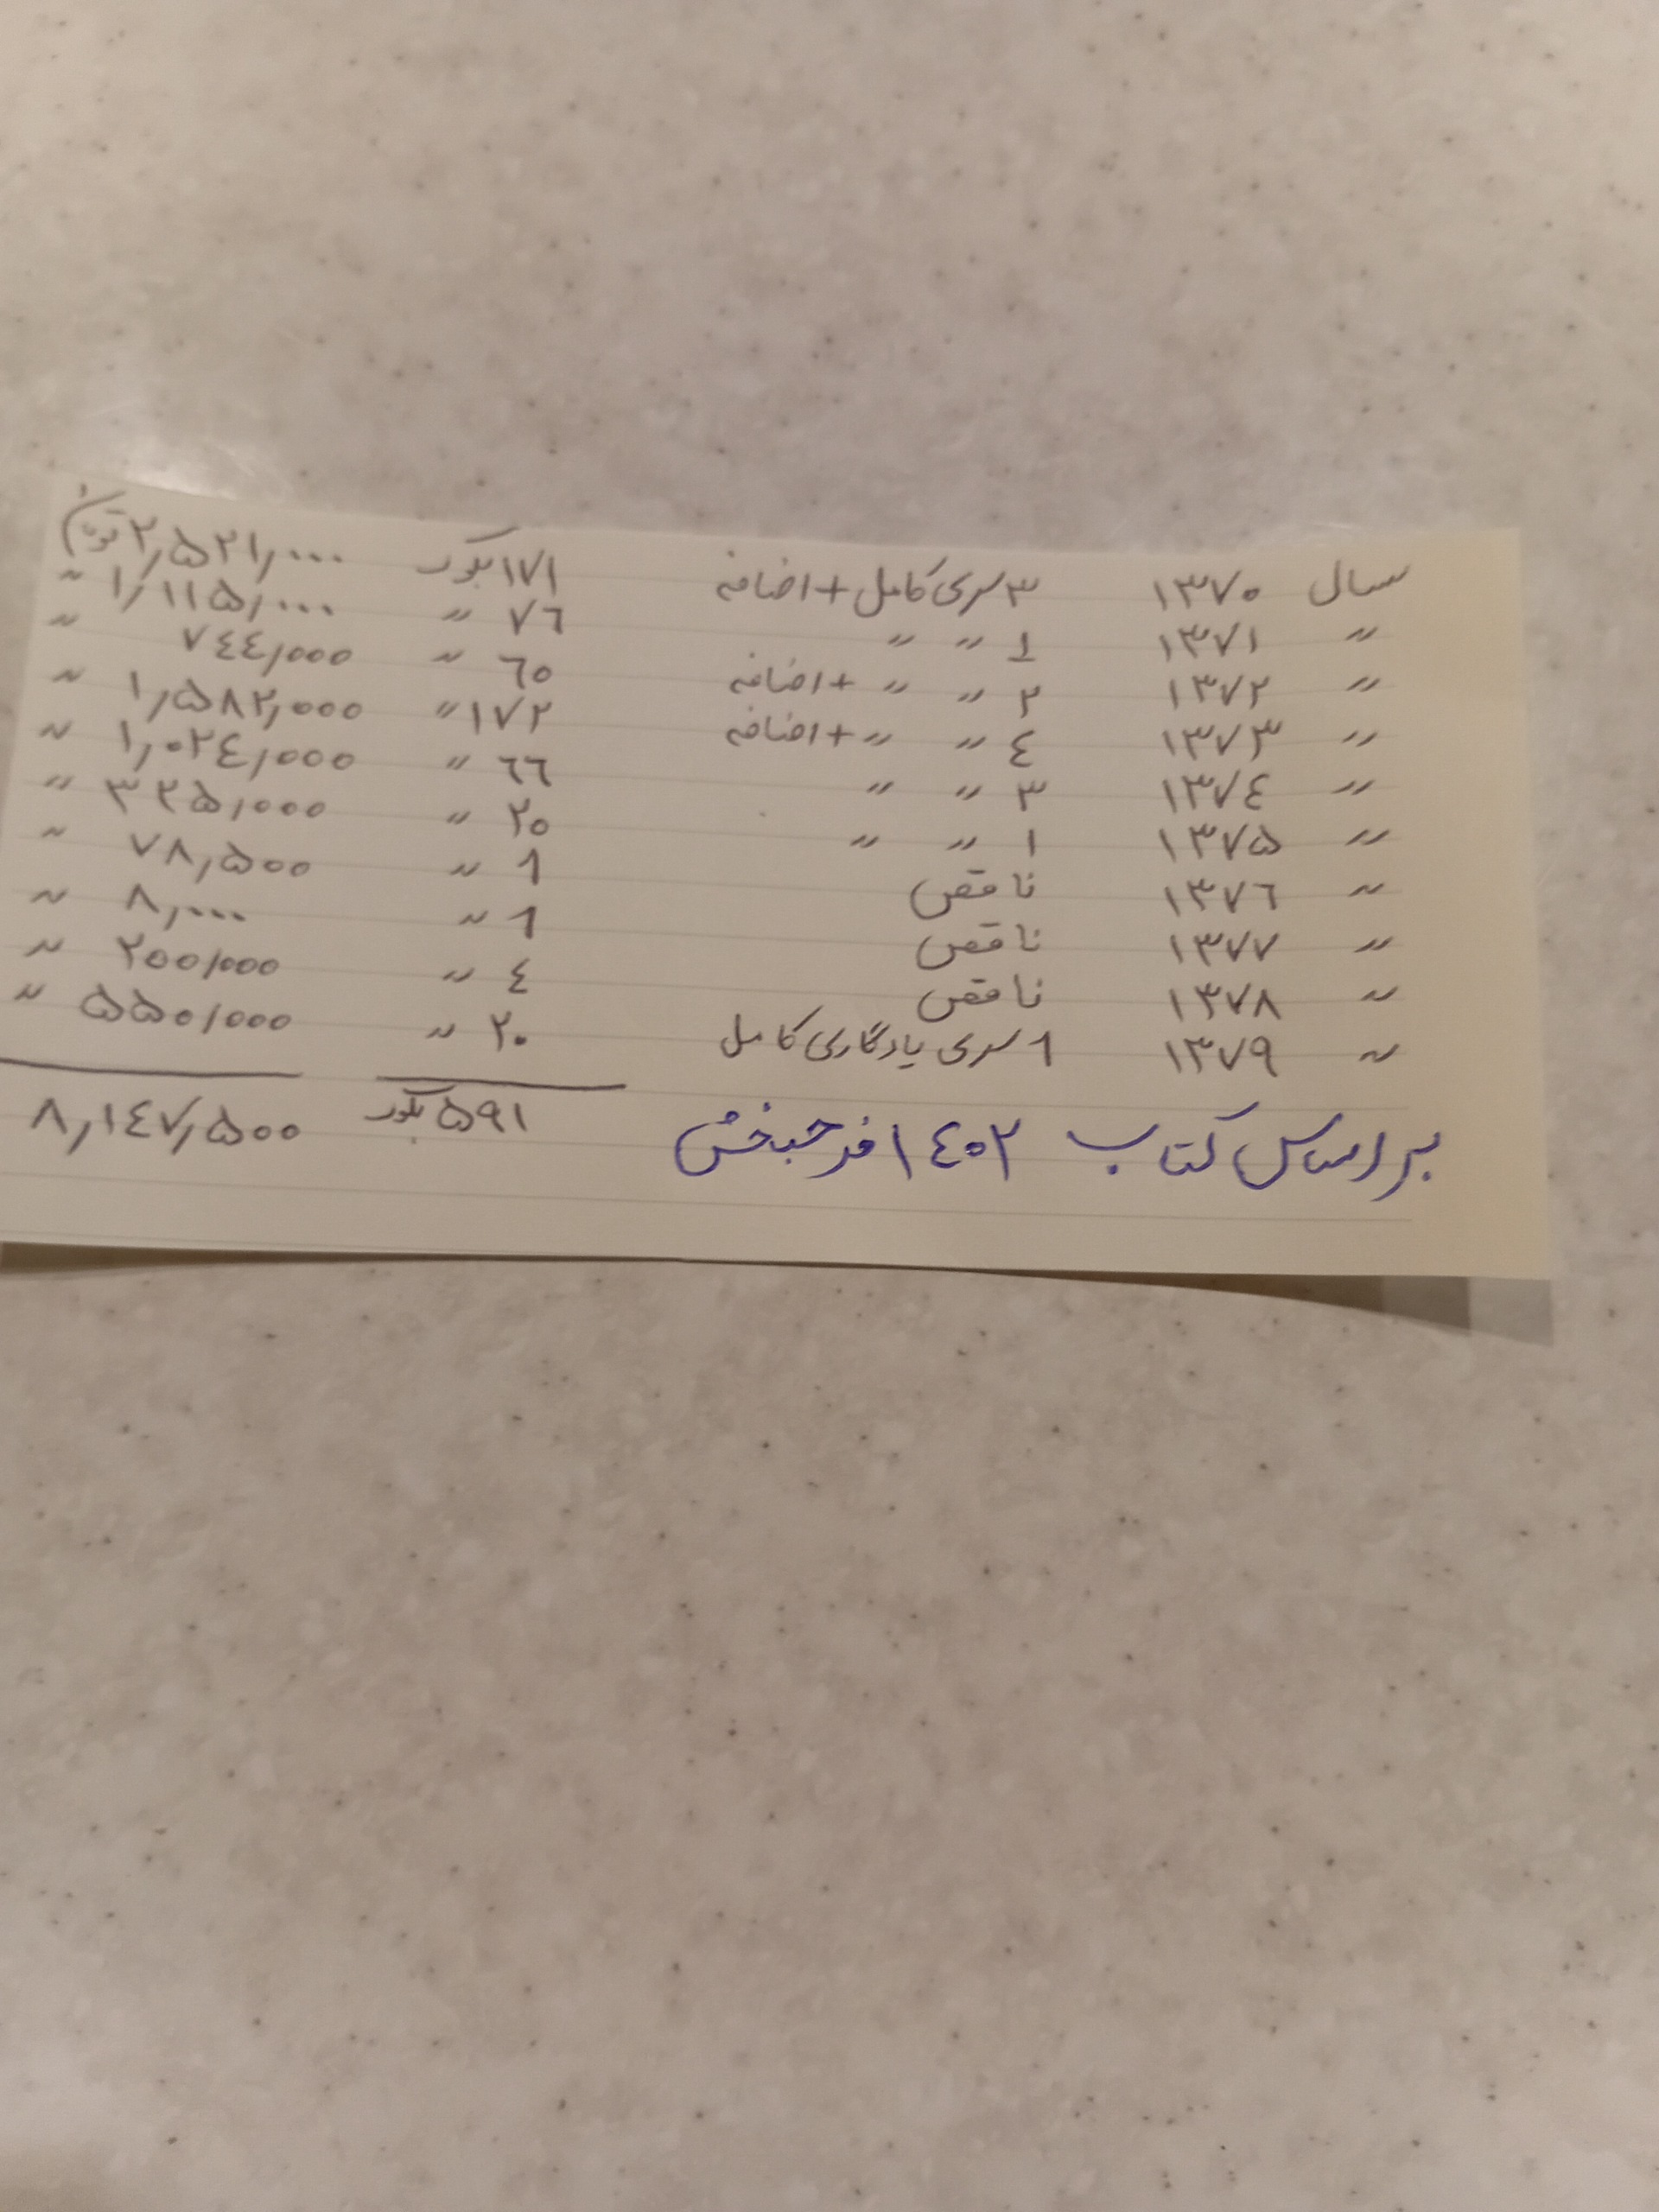 سال ۱۳۷۰ ۳ سری کامل + اضافه ۱۷۱ بلوک ۲,۵۲۱,۰۰۰ تومان
〃 ۱۳۷۱ ۱ 〃 〃 ۷٦ 〃 ۱,۱۱۵,۰۰۰ 〃
〃 ۱۳۷۲ ۲ 〃 〃 + اضافه ٦۰ 〃 ۷٤٤,۰۰۰ 〃
〃 ۱۳۷۳ ٤ 〃 〃 + اضافه ۱۷۲ 〃 ۱,۵۸۲,۰۰۰ 〃
〃 ۱۳۷٤ ۳ 〃 〃 ٦٦ 〃 ۱,۰۲٤,۰۰۰ 〃
〃 ۱۳۷۵ ۱ 〃 〃 ۲۰ 〃 ۳۲۵,۰۰۰ 〃
〃 ۱۳۷٦ ناقص ۱ 〃 ۷۸,۵۰۰ 〃
〃 ۱۳۷۷ ناقص ۱ 〃 ۸,۰۰۰ 〃
〃 ۱۳۷۸ ناقص ٤ 〃 ۲۰۰,۰۰۰ 〃
〃 ۱۳۷۹ ۱ سری یادگاری کامل ۲۰ 〃 ۵۵۰,۰۰۰ 〃
بر اساس کتاب ۱٤۰۲ فرحبخش ۵۹۱ بلوک ۸,۱٤۷,۵۰۰